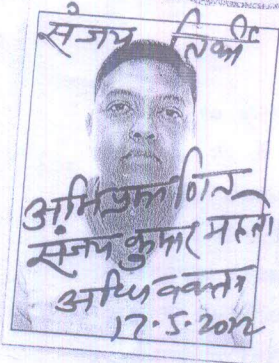 संजय तिर्की
अभिप्रमाणित
संजय कुमार महतो
अधिवक्ता
17.5.2012